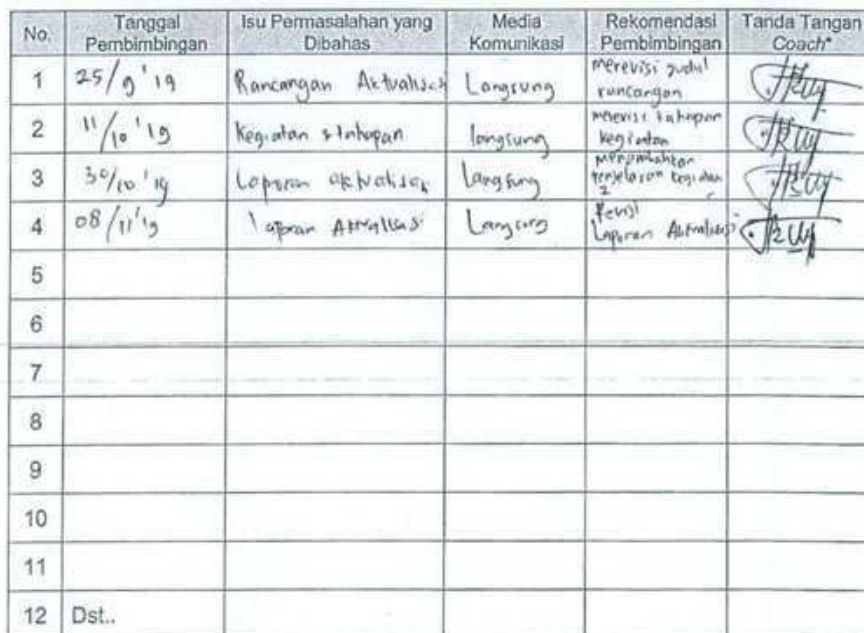 No. Tanggal Pembimbingan Isu Permasalahan yang Dibahas Media Komunikasi Rekomendasi Pembimbingan Tanda Tangan Coach*
1 25/9'19 Rancangan Aktualisasi Langsung merevisi judul rancangan
2 11/10'19 Kegiatan & tahapan langsung merevisi tahapan kegiatan
3 30/10'19 Laporan aktualisasi Langsung menambahkan penjelasan kegiatan 2
4 08/11'19 Laporan Aktualisasi Langsung Revisi Laporan Aktualisasi
5
6
7
8
9
10
11
12 Dst..